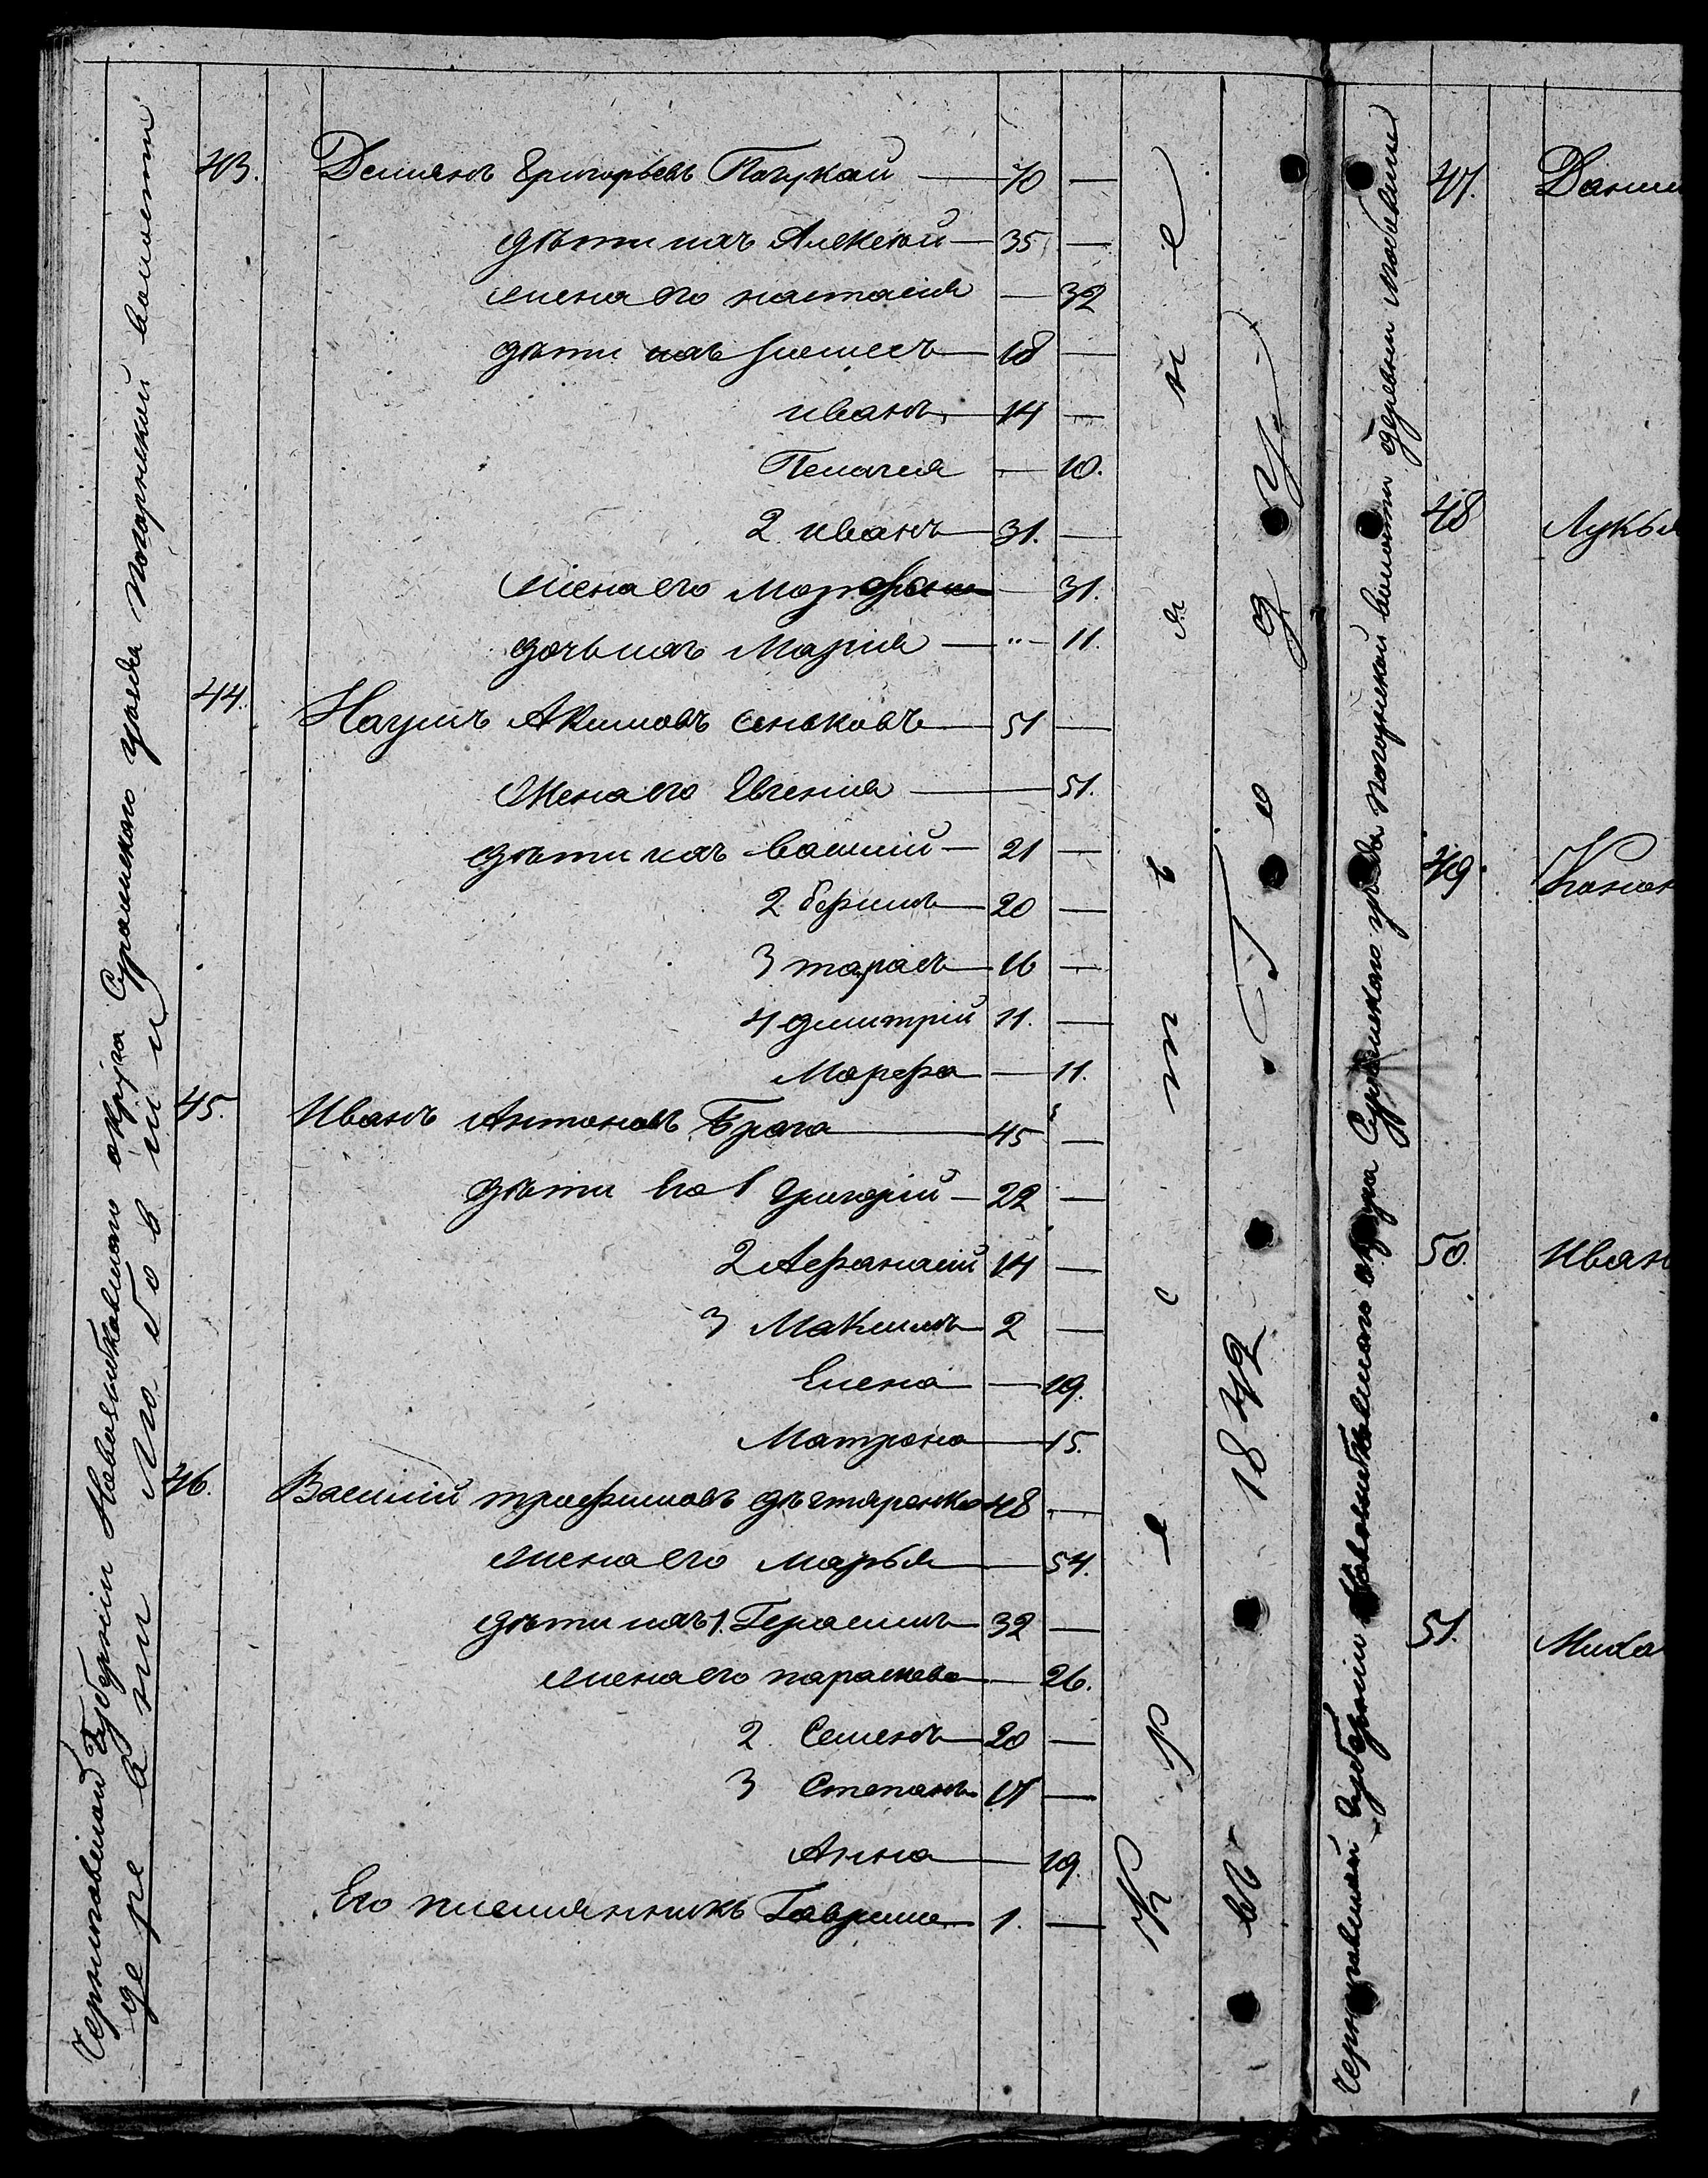 Черниговской Губернии Новозыбковского округа Суражского уезда Погарнской волости
деревни Любовшии
43. Демьянъ Григорьевъ — 70 —
дѣти ихъ Алексѣй — 35 —
жена его настасия — 32
дѣти ихъ — 18 —
иванъ — 14 —
Пелагея — 10.
2 иванъ — 31. —
жена его — 31.
дочь ихъ Марія — " — 11.
44. Наумъ Акимовъ сеньковъ — 51 —
Жена его Евгения — 51.
дѣти ихъ василий — 21 —
2 — 20 —
3 тарасъ — 16 —
4 дмитрій 11. —
Марфа — 11.
45. Иванъ Антоновъ Брага — 45 —
дѣти его 1 Григорій — 22 —
2 Афанасій 14 —
3 Максимъ — 2 —
Елена — 19.
Матрона — 15.
46. Василий трофимовъ дѣгтяренко 48 —
жена его марья — 54.
дѣти ихъ 1. Герасимъ — 32 —
жена его параскева — 26.
2. Семенъ — 20 —
3 Степанъ 17 —
Анна — 19.
Его племянникъ Гаврило — 1. —
Крестьяне
въ 1842 Году
Черниговской Губернии Новозыбковского округа Суражского уезда волости деревни
47. Данил
48 Лукья
49. Конон
50. Иван
51. Миха